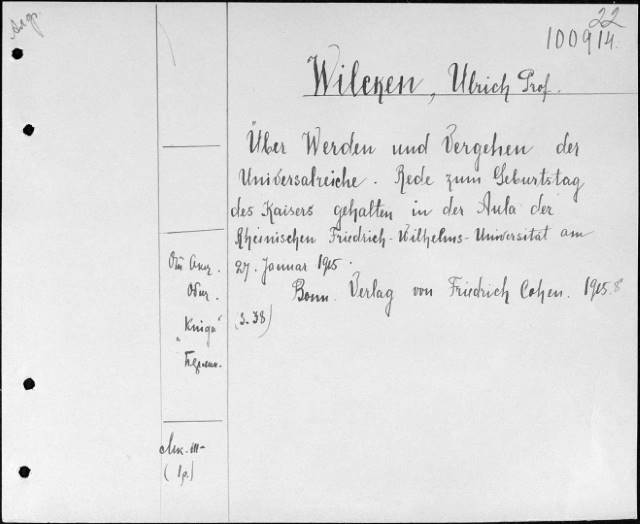 22
100914
Wilcken, Ulrich Prof.
Über Werden und Vergehen der
Universalreiche. Rede zum Geburtstag
des Kaisers gehalten in der Aula der
Rheinischen Friedrich-Wilhelms-Universität am
27. Januar 1915.
Bonn. Verlag von Friedrich Cohen. 1915. 8
(3-38)
"Kniga"
(1 р.)